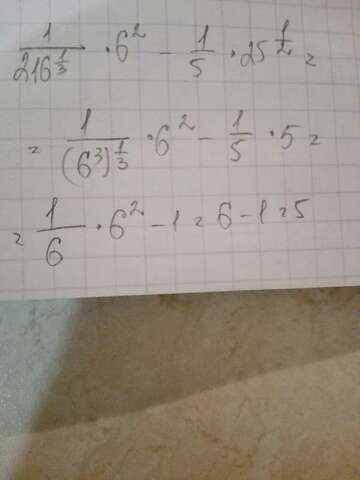 1/216^(1/3) · 6² − 1/5 · 25^(1/2) =
= 1/(6³)^(1/3) · 6² − 1/5 · 5 =
= 1/6 · 6² − 1 = 6 − 1 = 5